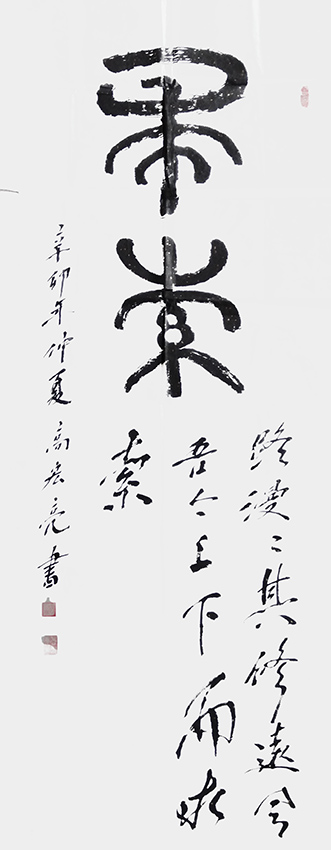 求索
路漫〻其修遠兮
吾今上下而求
索
辛卯年仲夏 高宏亮書